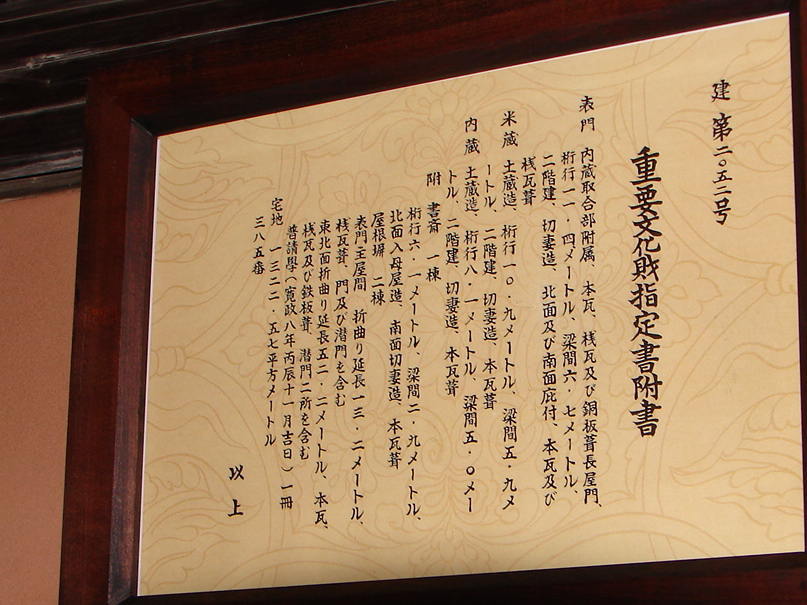 建第二〇五二号
重要文化財指定書附書
表門　内蔵取合部附属、本瓦、桟瓦及び銅板葺長屋門、
桁行一一・四メートル、梁間六・七メートル、
二階建、切妻造、北面及び南面庇付、本瓦及び
桟瓦葺
米蔵　土蔵造、桁行一〇・九メートル、梁間五・九メ
ートル、二階建、切妻造、本瓦葺
内蔵　土蔵造、桁行八・一メートル、梁間五・〇メー
トル、二階建、切妻造、本瓦葺
附　書斎　一棟
桁行六・一メートル、梁間二・九メートル、
北面入母屋造、南面切妻造、本瓦葺
屋根塀　二棟
表門主屋間　折曲り延長一三・二メートル、
桟瓦葺、門及び潜門を含む
東北面折曲り延長五二・二メートル、本瓦、
桟瓦及び鉄板葺、潜門二所を含む
普請（寛政八年丙辰十一月吉日）一冊
宅地　一三二二・五七平方メートル
三八五番
以上